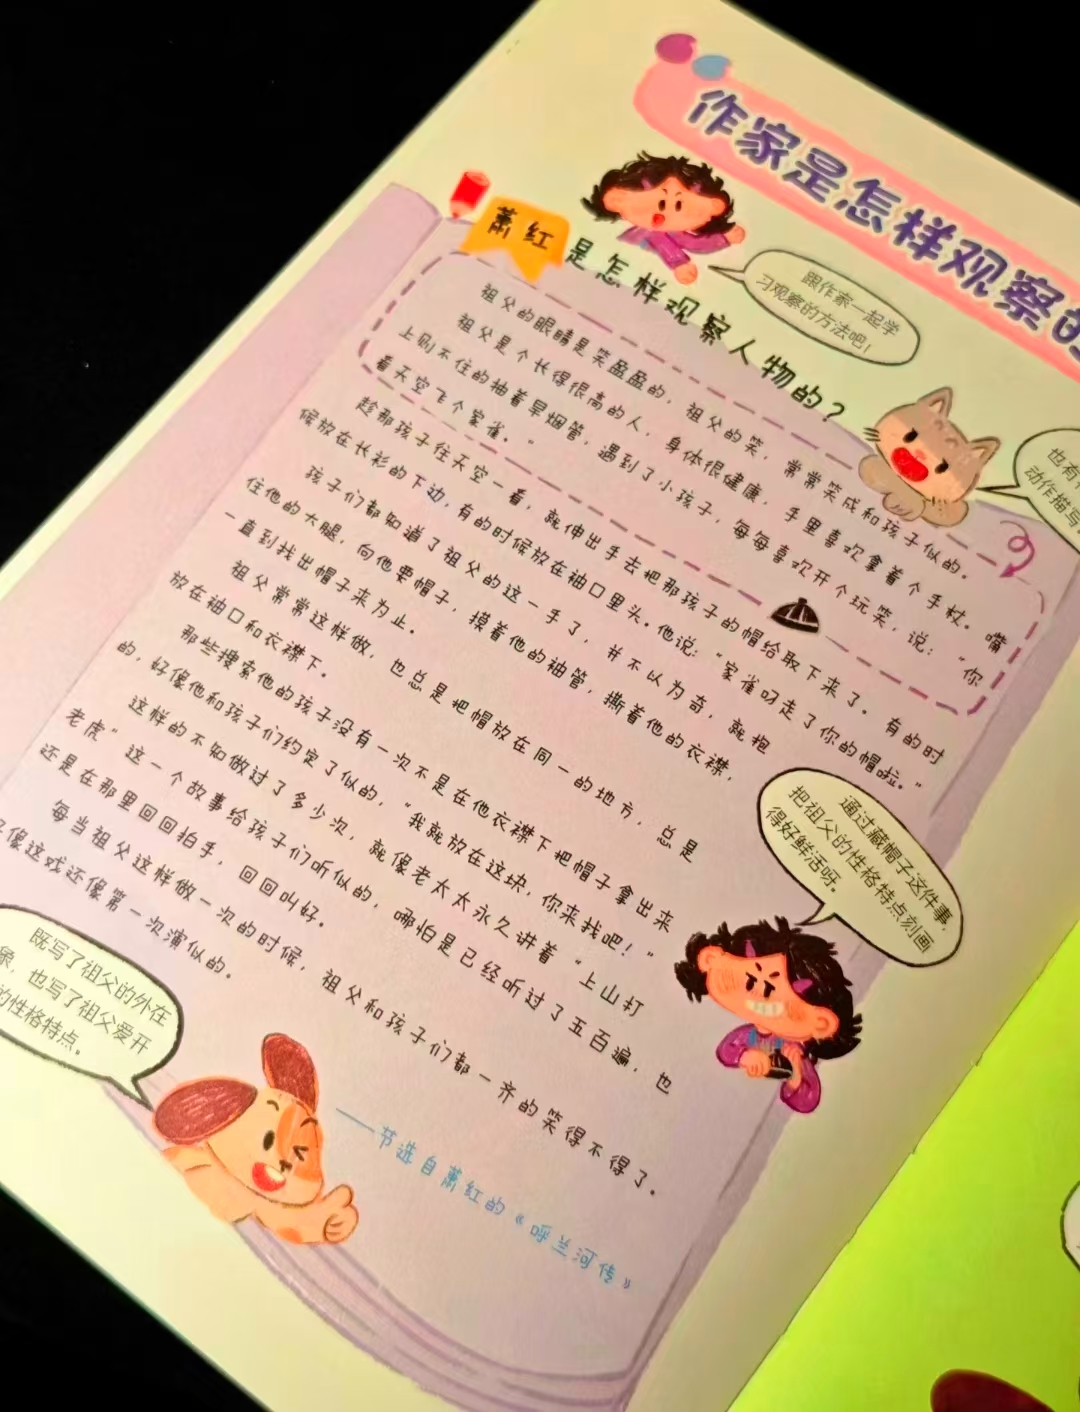 作家是怎样观察的
萧红是怎样观察人物的？
跟作家一起学
习观察的方法吧！
祖父的眼睛是笑盈盈的，祖父的笑，常常笑成和孩子似的。
祖父是个长得很高的人，身体很健康，手里喜欢拿着个手杖。嘴
上则不住的抽着旱烟管，遇到了小孩子，每每喜欢开个玩笑，说：“你
看天空飞个家雀。”
趁那孩子往天空一看，就伸出手去把那孩子的帽给取下来了。有的时
候放在长衫的下边，有的时候放在袖口里头。他说：“家雀叼走了你的帽啦。”
孩子们都知道了祖父的这一手了，并不以为奇，就抱
住他的大腿，向他要帽子，摸着他的袖管，撕着他的衣襟，
一直到找出帽子来为止。
祖父常常这样做，也总是把帽放在同一的地方，总是
放在袖口和衣襟下。
那些搜索他的孩子没有一次不是在他衣襟下把帽子拿出来
的，好像他和孩子们约定了似的，“我就放在这块，你来找吧！”
这样的不知做过了多少次，就像老太太永久讲着“上山打
老虎”这一个故事给孩子们听似的，哪怕是已经听过了五百遍，也
还是在那里回回拍手，回回叫好。
每当祖父这样做一次的时候，祖父和孩子们都一齐的笑得不得了。
好像这戏还像第一次演似的。
——节选自萧红的《呼兰河传》
也有
动作描写
通过藏帽子这件事，
把祖父的性格特点刻画
得好鲜活呀。
既写了祖父的外在
象，也写了祖父爱开
的性格特点。